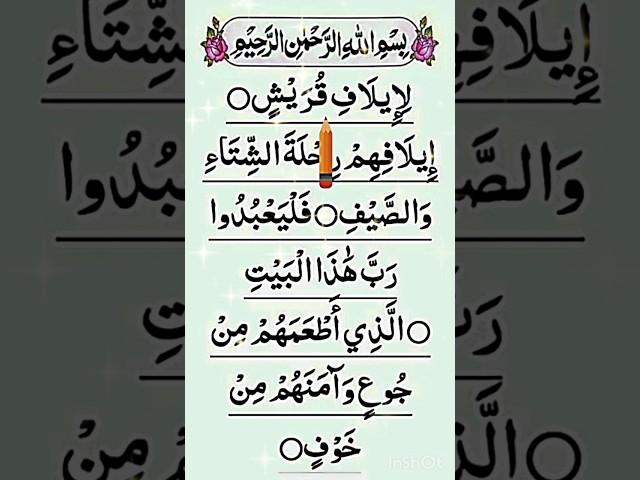 بِسْمِ اللهِ الرَّحْمٰنِ الرَّحِيْمِ
لِإِيلَافِ قُرَيْشٍ○
إِيلَافِهِمْ رِحْلَةَ الشِّتَاءِ
وَالصَّيْفِ○فَلْيَعْبُدُوا
رَبَّ هَٰذَا الْبَيْتِ
○الَّذِي أَطْعَمَهُمْ مِنْ
جُوعٍ وَآمَنَهُمْ مِنْ
خَوْفٍ○
InShOt